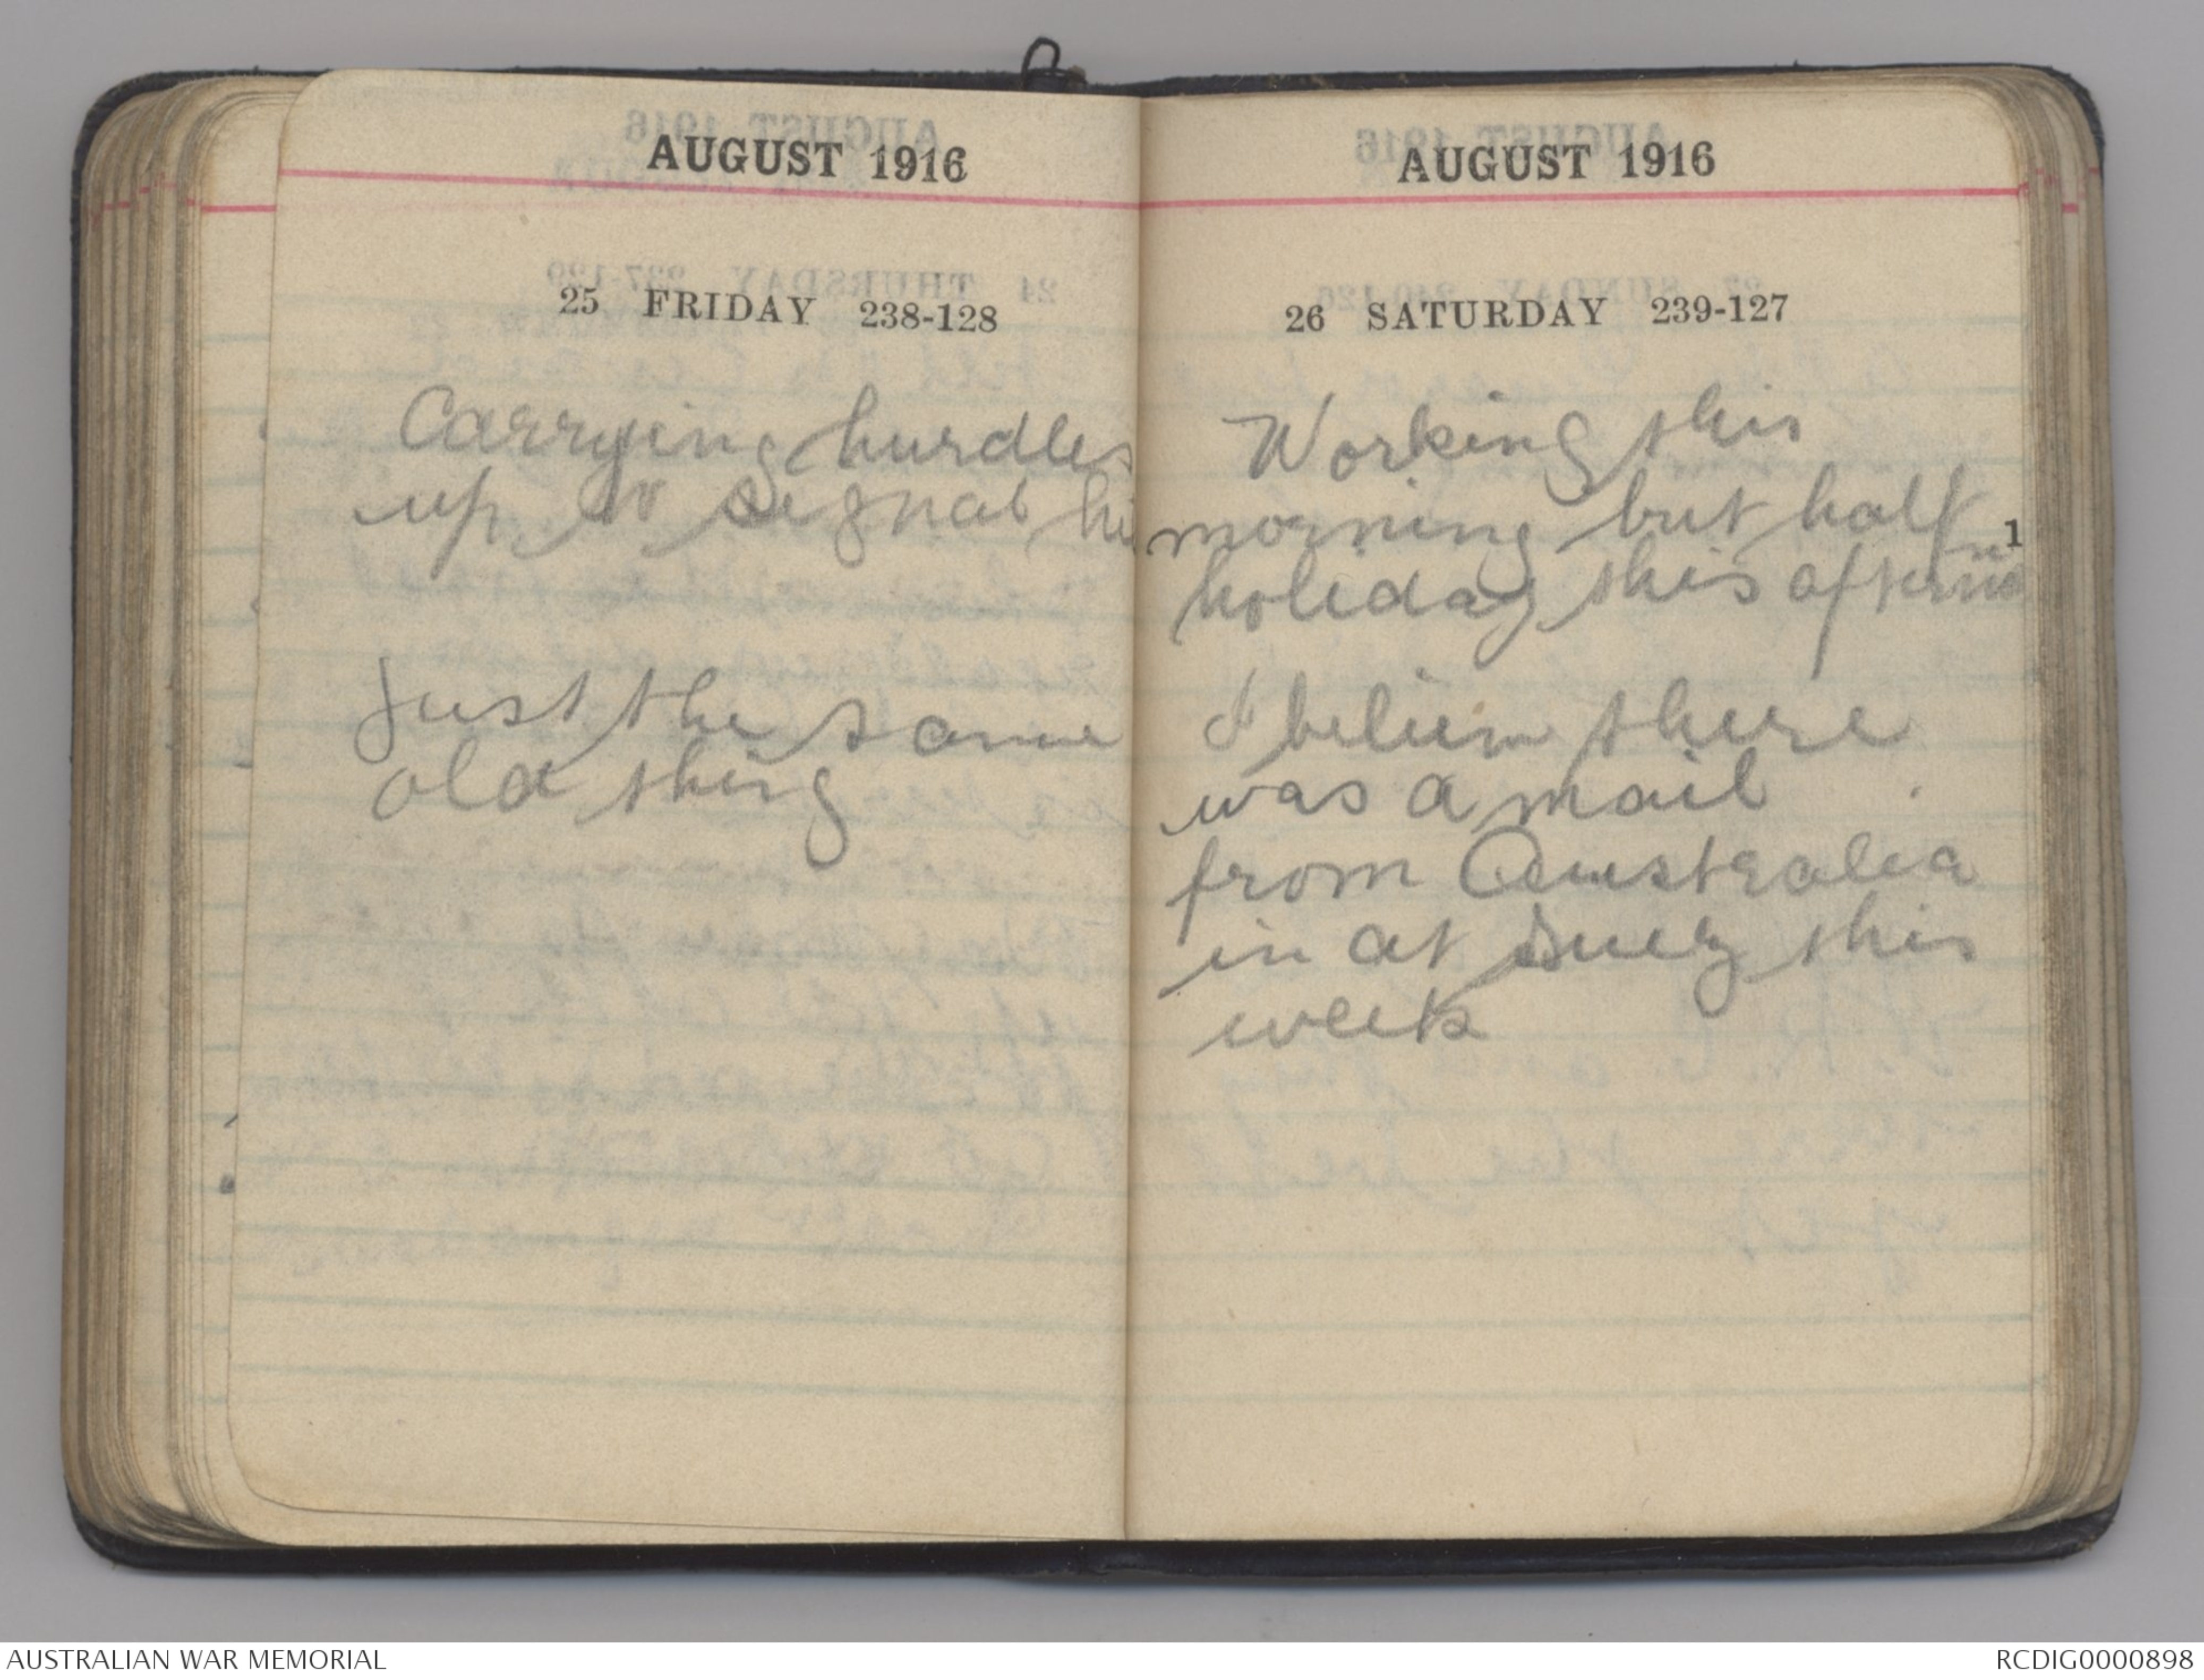 AUGUST 1916
25 FRIDAY 238-128
Carrying hurdles
up to signal hi
Just the same
old thing
AUGUST 1916
26 SATURDAY 239-127
Working this
morning but half
holiday this
1
I believe there
was a mail
from Australia
in at Suez this
week
AUSTRALIAN WAR MEMORIAL
RCDIG0000898